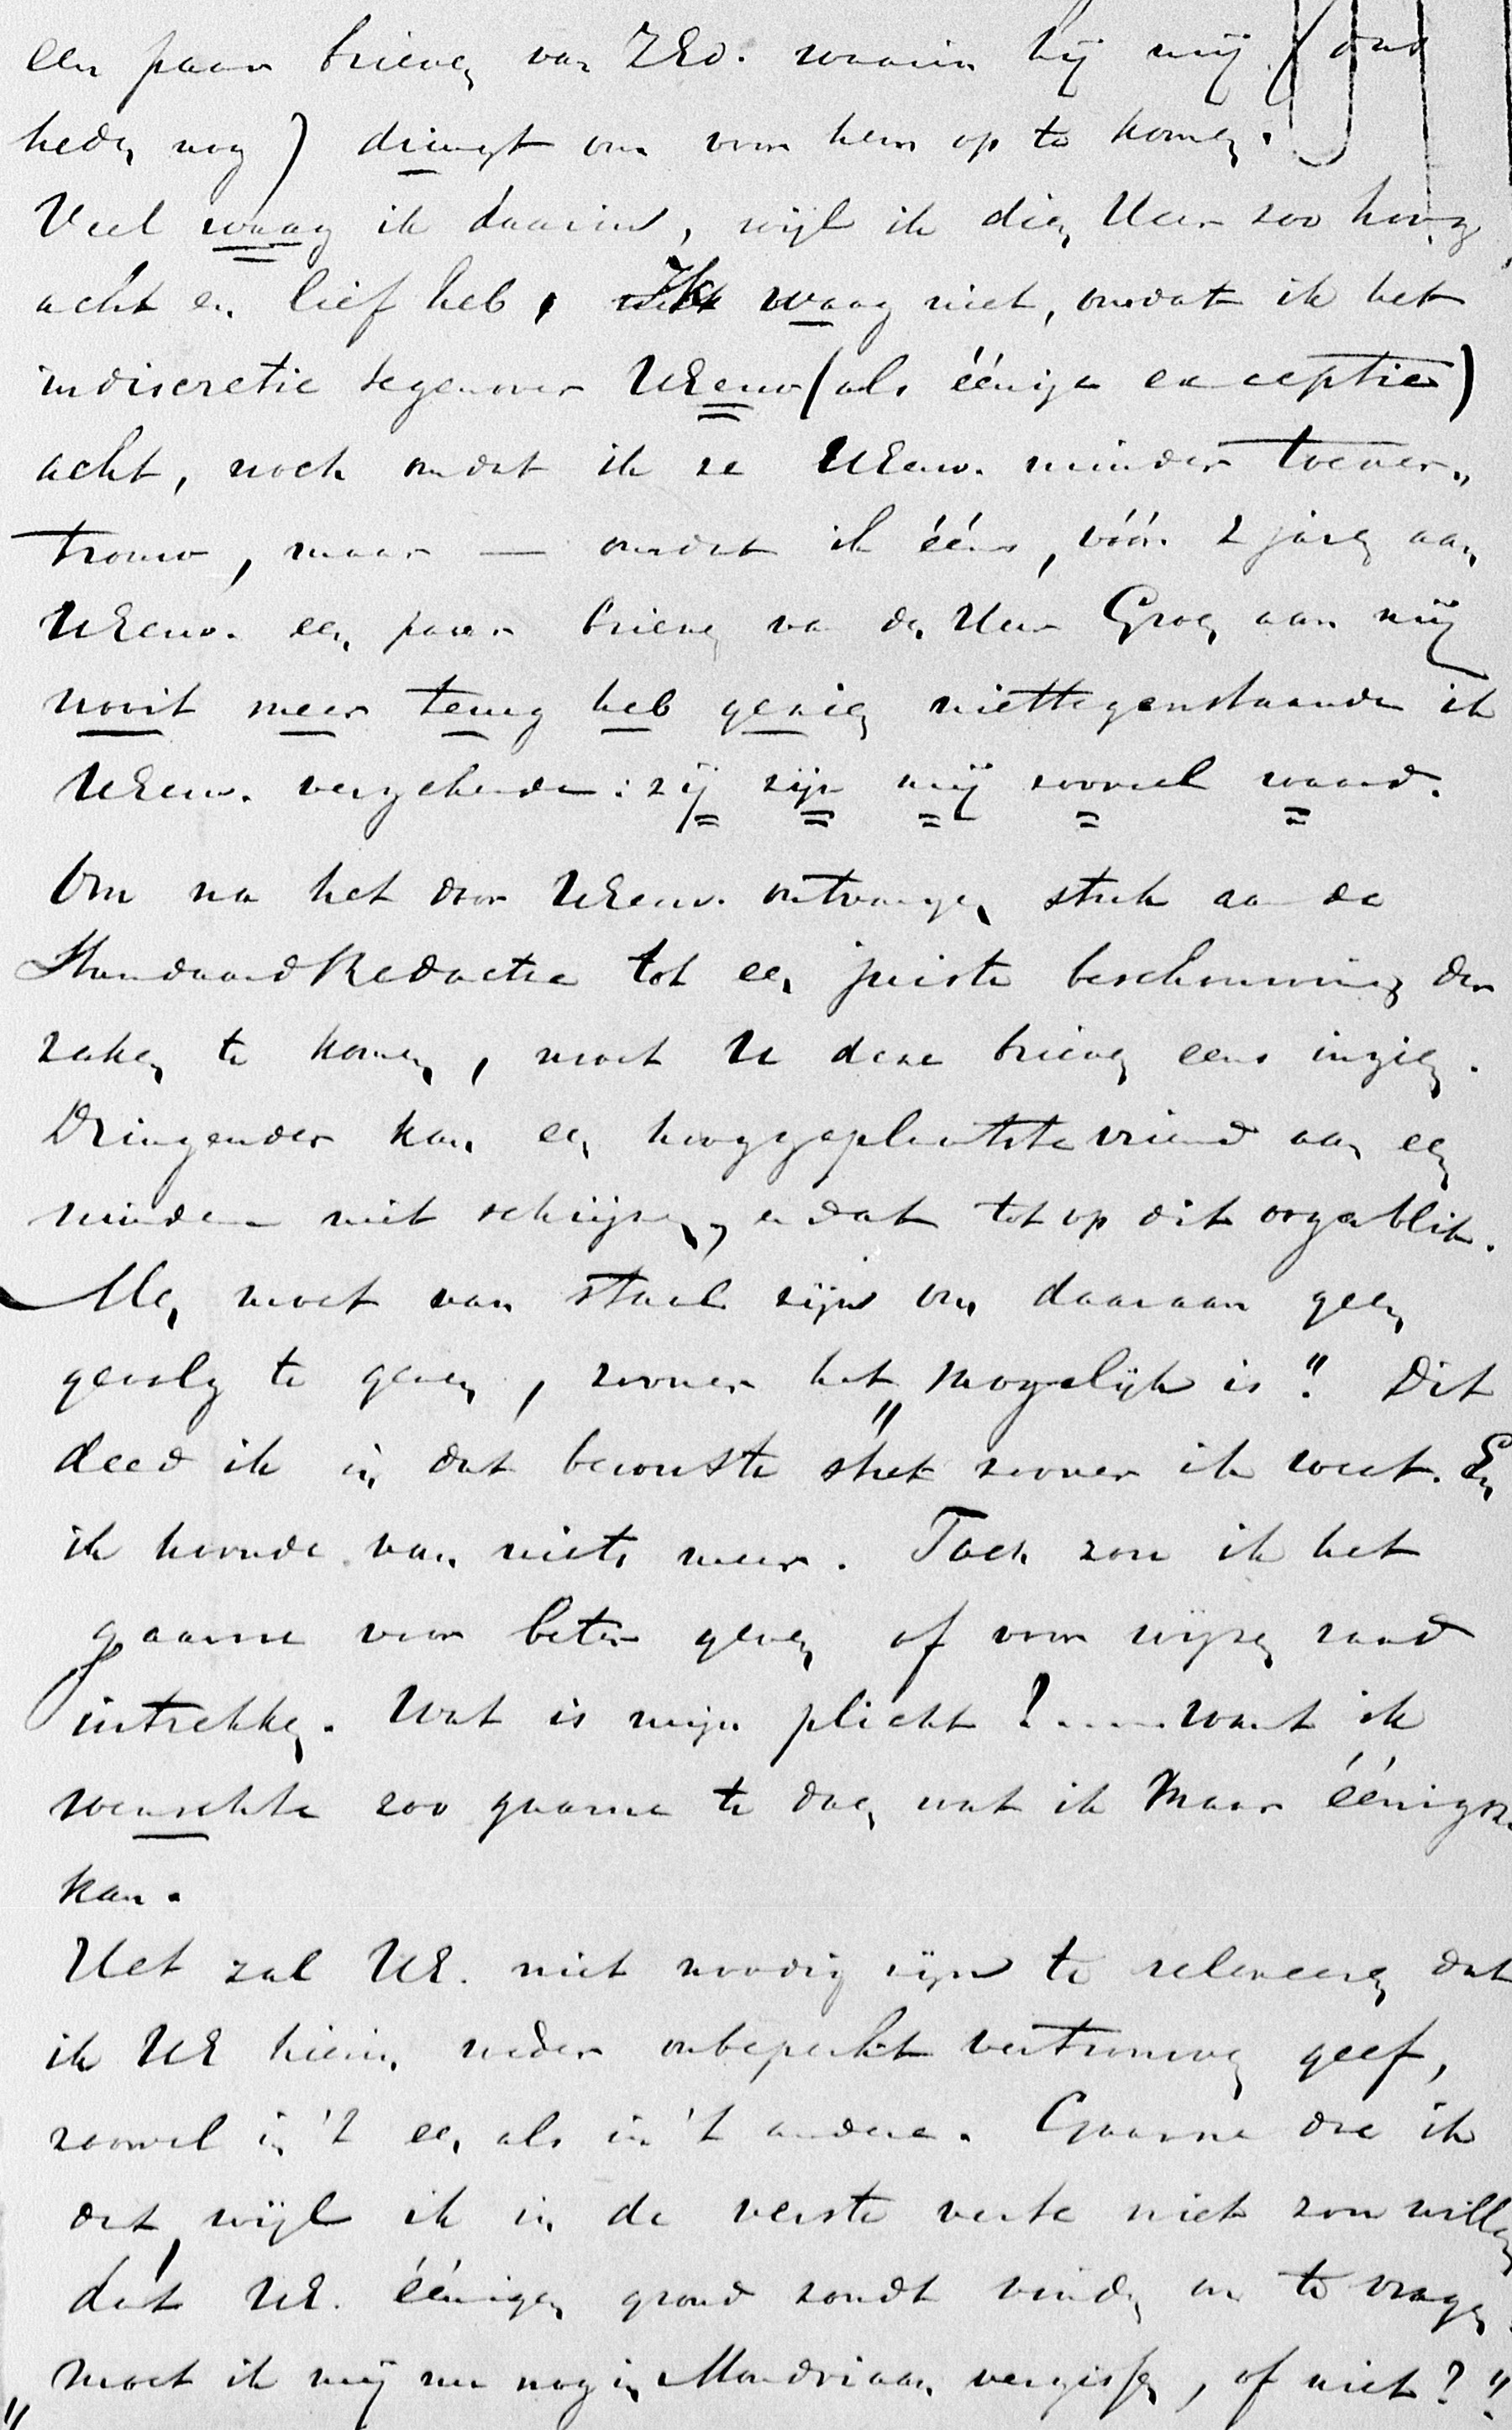 een paar brieven van ZEd. waarin hij mij (ook
heden nog) dringt om voor hem op te komen.
Veel waag ik daarin, wijl ik dien Heer zoo hoog
acht en lief heb, Ik waag niet, omdat ik het
indiscretie tegenover UEerw (als éénige exceptie)
acht, noch omdat ik ze UEerw. minder toever„
trouw, maar — omdat ik ééns, vóór 2 jaren aan
UEerw. een paar brieven van den Heer Groen aan mij
nooit meer terug heb gezien niettegenstaande ik
UEerw. verzekerde: zij zijn mij zooveel waard.
Om na het door UEerw. ontvangen stuk aan de
Standaard Redactie tot een juiste beschouwing der
zaken te komen, moet U deze brieven eens inzien.
Dringender kan een hooggeplaatste vriend aan een
mindere niet schrijven, en dat tot op dit oogenblik.
Men moet van staal zijn om daaraan geen
gevolg te geven, zoover het „mogelijk is". Dit
deed ik in dat bewuste stuk zoover ik weet. En
ik hoorde van niets meer. Toch zou ik het
gaarne voor beter geven of voor wijzen raad
intrekken. Wat is mijn plicht?.....want ik
wenschte zoo gaarne te doen wat ik maar éénigsz.
kan.
Het zal UE. niet noodig zijn te releveeren dat
ik UE hierin weder onbeperkt vertrouwen geef,
zoowel in 't een als in 't andere. Gaarne doe ik
dat, wijl ik in de verste verte niet zou willen
dat UE. éénigen grond zoudt vinden om te vragen
„moet ik mij nu nog in Mondriaan vergissen, of niet?"